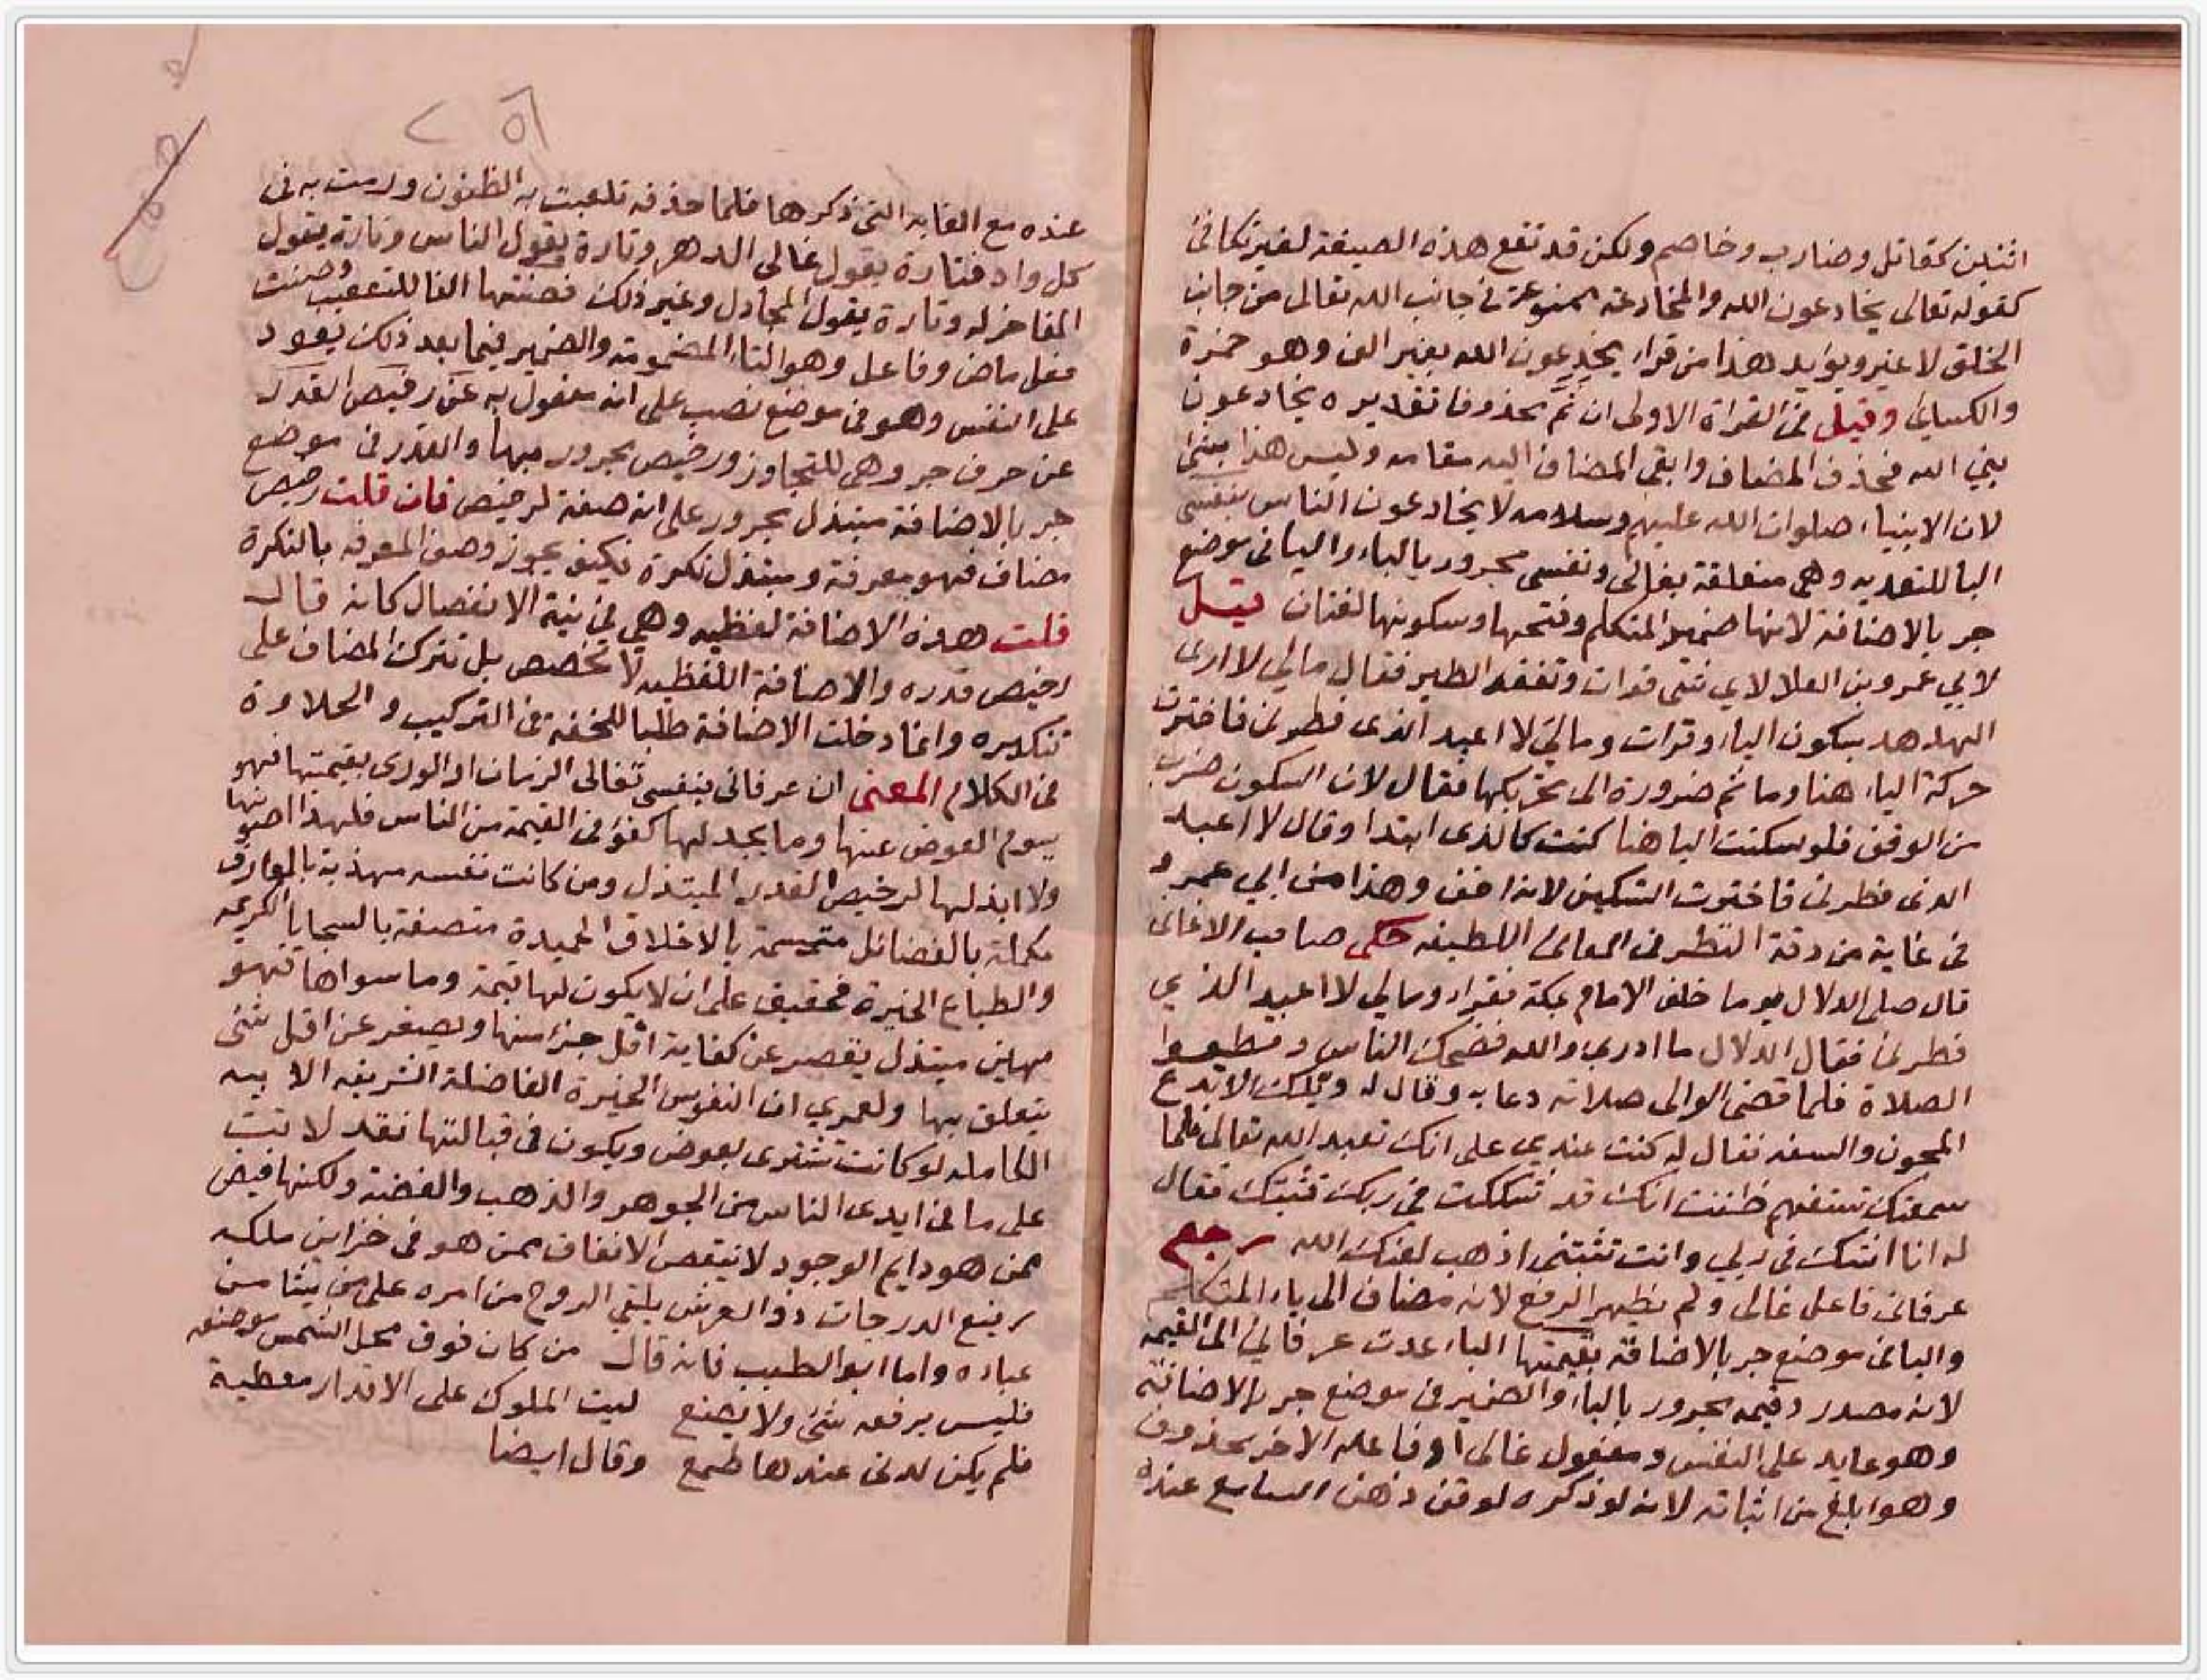 اثنين كقاتل وضارب وخاصم ولكن قد تقع هذه الصيغة لغير تكافئ
كقوله تعالى يخادعون الله والمخادعة ممنوعة في جانب الله تعالى من جانب
الخلق لا غير ويؤيد هذا من قراء يخدعون الله بغير الف وهو حمزة
والكسائي وقيل في القراة الاولى ان ثم محذوفا تقديره يخادعون
نبي الله فحذف المضاف وابقى المضاف اليه مقامه وليس هذا بشئ
لان الانبياء صلوات الله عليهم وسلامه لا يخادعون الناس بنفسى
البا للتعديه وهي متعلقة بغالى ونفسى مجرور بالباء واليا في موضع
جر بالاضافة لانها ضمير المتكلم وفتحها وسكونها لغتان قيل
لابي عمرو بن العلا لاي شئ قرات وتفقد الطير فقال مالي لا ارى
الهدهد بسكون الياء وقرات ومالي لا اعبد الذى فطرنى فاخترت
حركة الياء هنا وما ثم ضرورة الى تحريكها فقال لان السكون ضرب
من الوقف فلو سكنت اليا هنا كنت كالذى ابتدا وقال لا اعبد
الذى فطرنى فاخترت التسكين لانه اخف وهذا من ابي عمرو
فى غاية من دقة النظر فى المعانى اللطيفه حكى صاحب الاغانى
قال صلى الدلال يوما خلف الامام بمكة فقراء ومالي لا اعبد الذي
فطرنى فقال الدلال ما ادري والله فضحك الناس وقطعوا
الصلاة فلما قضى الوالى صلاته دعا به وقال له ويلك الا تدع
المجون والسفه فقال له كنت عندي على انك تعبد الله تعالى فلما
سمعتك تستفهم ظننت انك قد تشككت فى ربك فثبتك فقال
له انا اشك فى ربي وانت تثبتنى اذهب لعنك الله رجع
عرفانى فاعل غالى ولم يظهر الرفع لانه مضاف الى ياء المتكلم
واليا فى موضع جر بالاضافة بقيمتها الباء عدت عرفاني الى القيمه
لانه مصدر وقيمه مجرور بالباء والضمير فى موضع جر بالاضافة
وهو عايد على النفس ومفعول غالى او فاعله الاخر محذوف
وهو ابلغ من اثباته لانه لو ذكره لوقف ذهن السامع عنده
٢٥٦
عنده مع الغايه التى ذكرها فلما حذفه تلعبت به الظنون ورمت به فى
كل واد فتارة يقول غالى الدهر وتارة يقول الناس وتارة يقول
المفاخر له وتارة يقول المجادل وغير ذلك فصنتها الفا للتعقيب وصنت
فعل ماض وفاعل وهو التاء المضمومة والضمير فيما بعد ذلك يعود
على النفس وهو فى موضع نصب على انه مفعول به عن رخيص القدر
عن حرف جر وهى للتجاوز ورخيص مجرور بها والقدر فى موضع
جر بالاضافة مبتذل مجرور على انه صفة لرخيص فان قلت رخيص
مضاف فهو معرفة ومبتذل نكرة فكيف يجوز وصف المعرفه بالنكرة
قلت هذه الاضافة لفظيه وهي في نية الانفصال كانه قال
رخيص قدره والاضافة اللفظيه لا تخصص بل تترك المضاف على
تنكيره وانما دخلت الاضافة طلبا للخفة فى التركيب والحلاوة
فى الكلام المعنى ان عرفانى بنفسى تغالى الزمان او الورى بقيمتها فهو
يسوم العوض عنها وما يجد لها كفؤ فى القيمة من الناس فلهذا اصونها
ولا ابذلها لرخيص القدر المبتذل ومن كانت نفسه مهذبة بالمعارف
مكملة بالفضائل متحسمة بالاخلاق الحميدة متصفة بالسجايا الكريمه
والطباع الخيرة فحقيق على ان لا يكون لها قيمة وما سواها فهو
مهين مبتذل يقصر عن كفاية اقل جزء منها ويصغر عن اقل شئ
يتعلق بها ولعمري ان النفوس الخيرة الفاضلة الشريفه الابيه
الكامله لو كانت تشترى بعوض ويكون فى قبالتها نقد لاتت
على ما فى ايدى الناس من الجوهر والذهب والفضة ولكنها فيض
ممن هو دايم الوجود لا ينقص الانفاق ممن هو فى خزاين ملكه
رفيع الدرجات ذو العرش يلقي الروح من امره على من يشا من
عباده واما ابو الطيب فانه قال من كان فوق محل الشمس موضعه
فليس يرفعه شئ ولا يضع ليت الملوك على الاقدار معطية
فلم يكن لدنى عندها طمع وقال ايضا